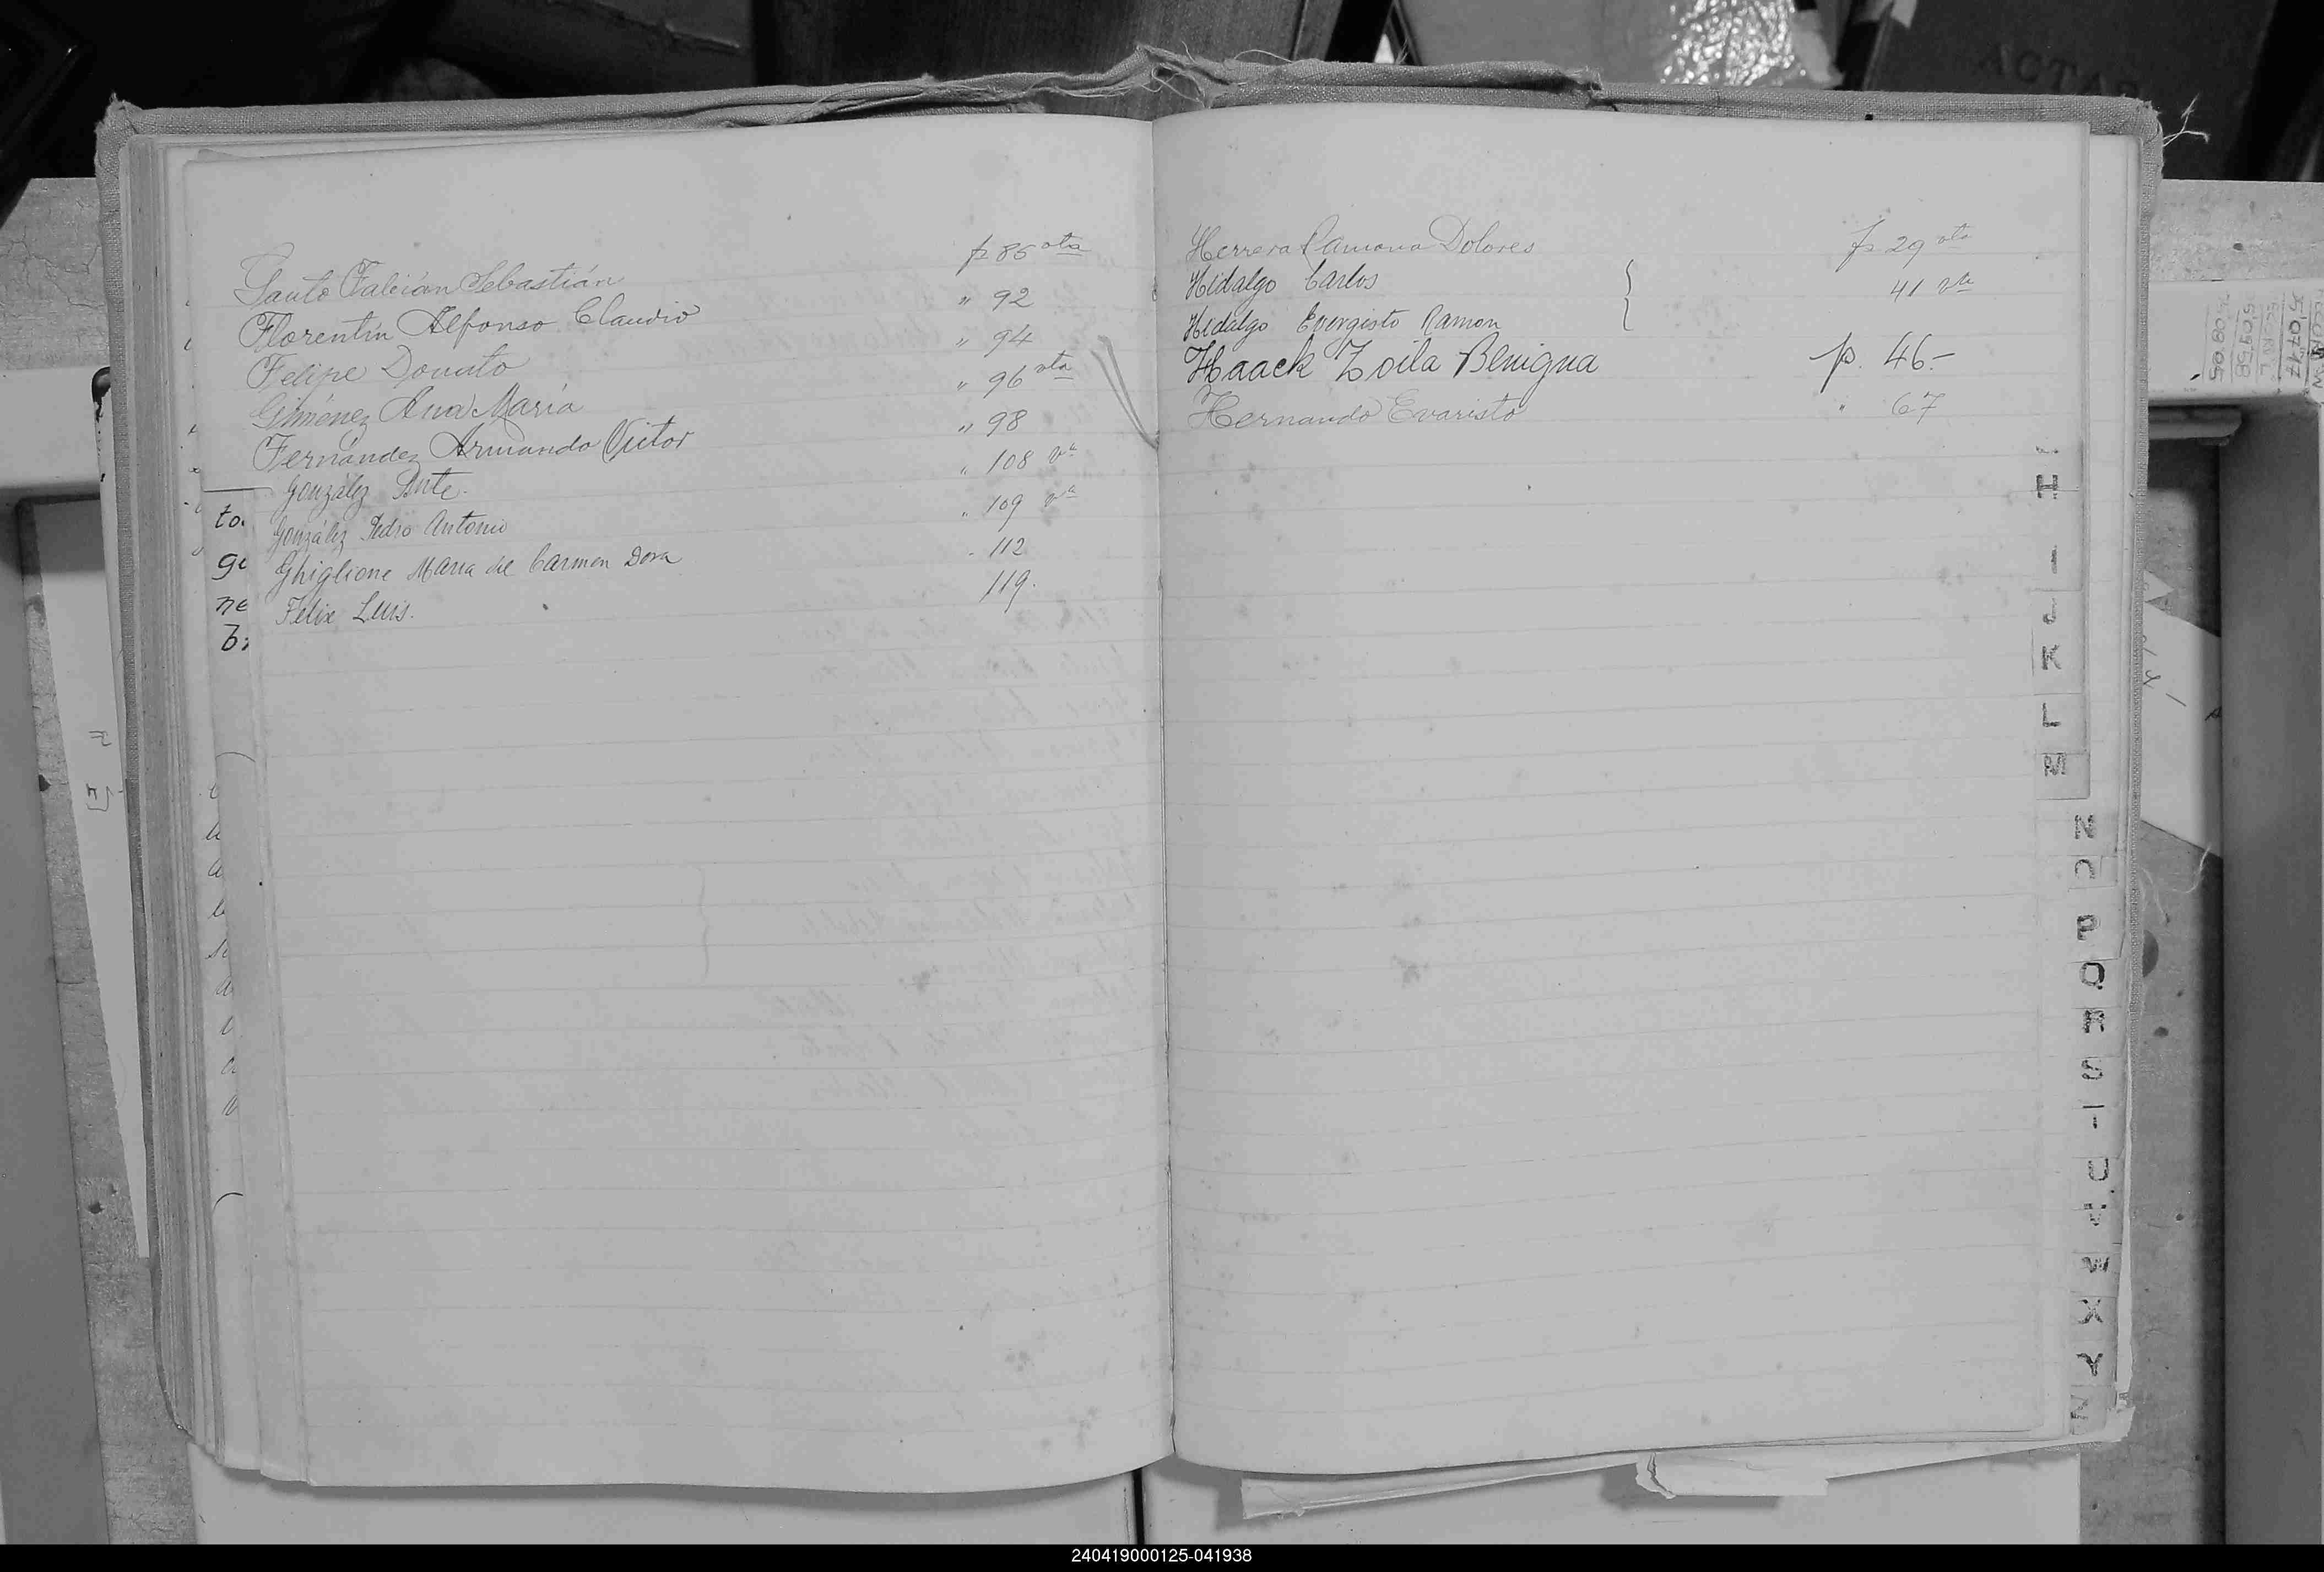 Gauto Fabián Sebastián p 86 vta
Florentín Alfonso Claudio " 92
Felipe Donato " 94
Giménez Ana María " 96 vta
Fernández Armando Victor " 98
González Ante. " 108 va
González Pedro Antonio " 109 va
Ghiglione Maria del Carmen Dora " 112
Felix Luis. 119.
to.
ne
Herrera Ramona Dolores p 29 vta
Hidalgo Carlos
Hidalgo Evergisto Ramon } 41 vta
Haack Zoila Benigna p. 46-
Hernando Evaristo " 67
H
I
J
K
L
M
N
O
P
Q
R
S
T
U
V
W
X
Y
Z
240419000125-041938